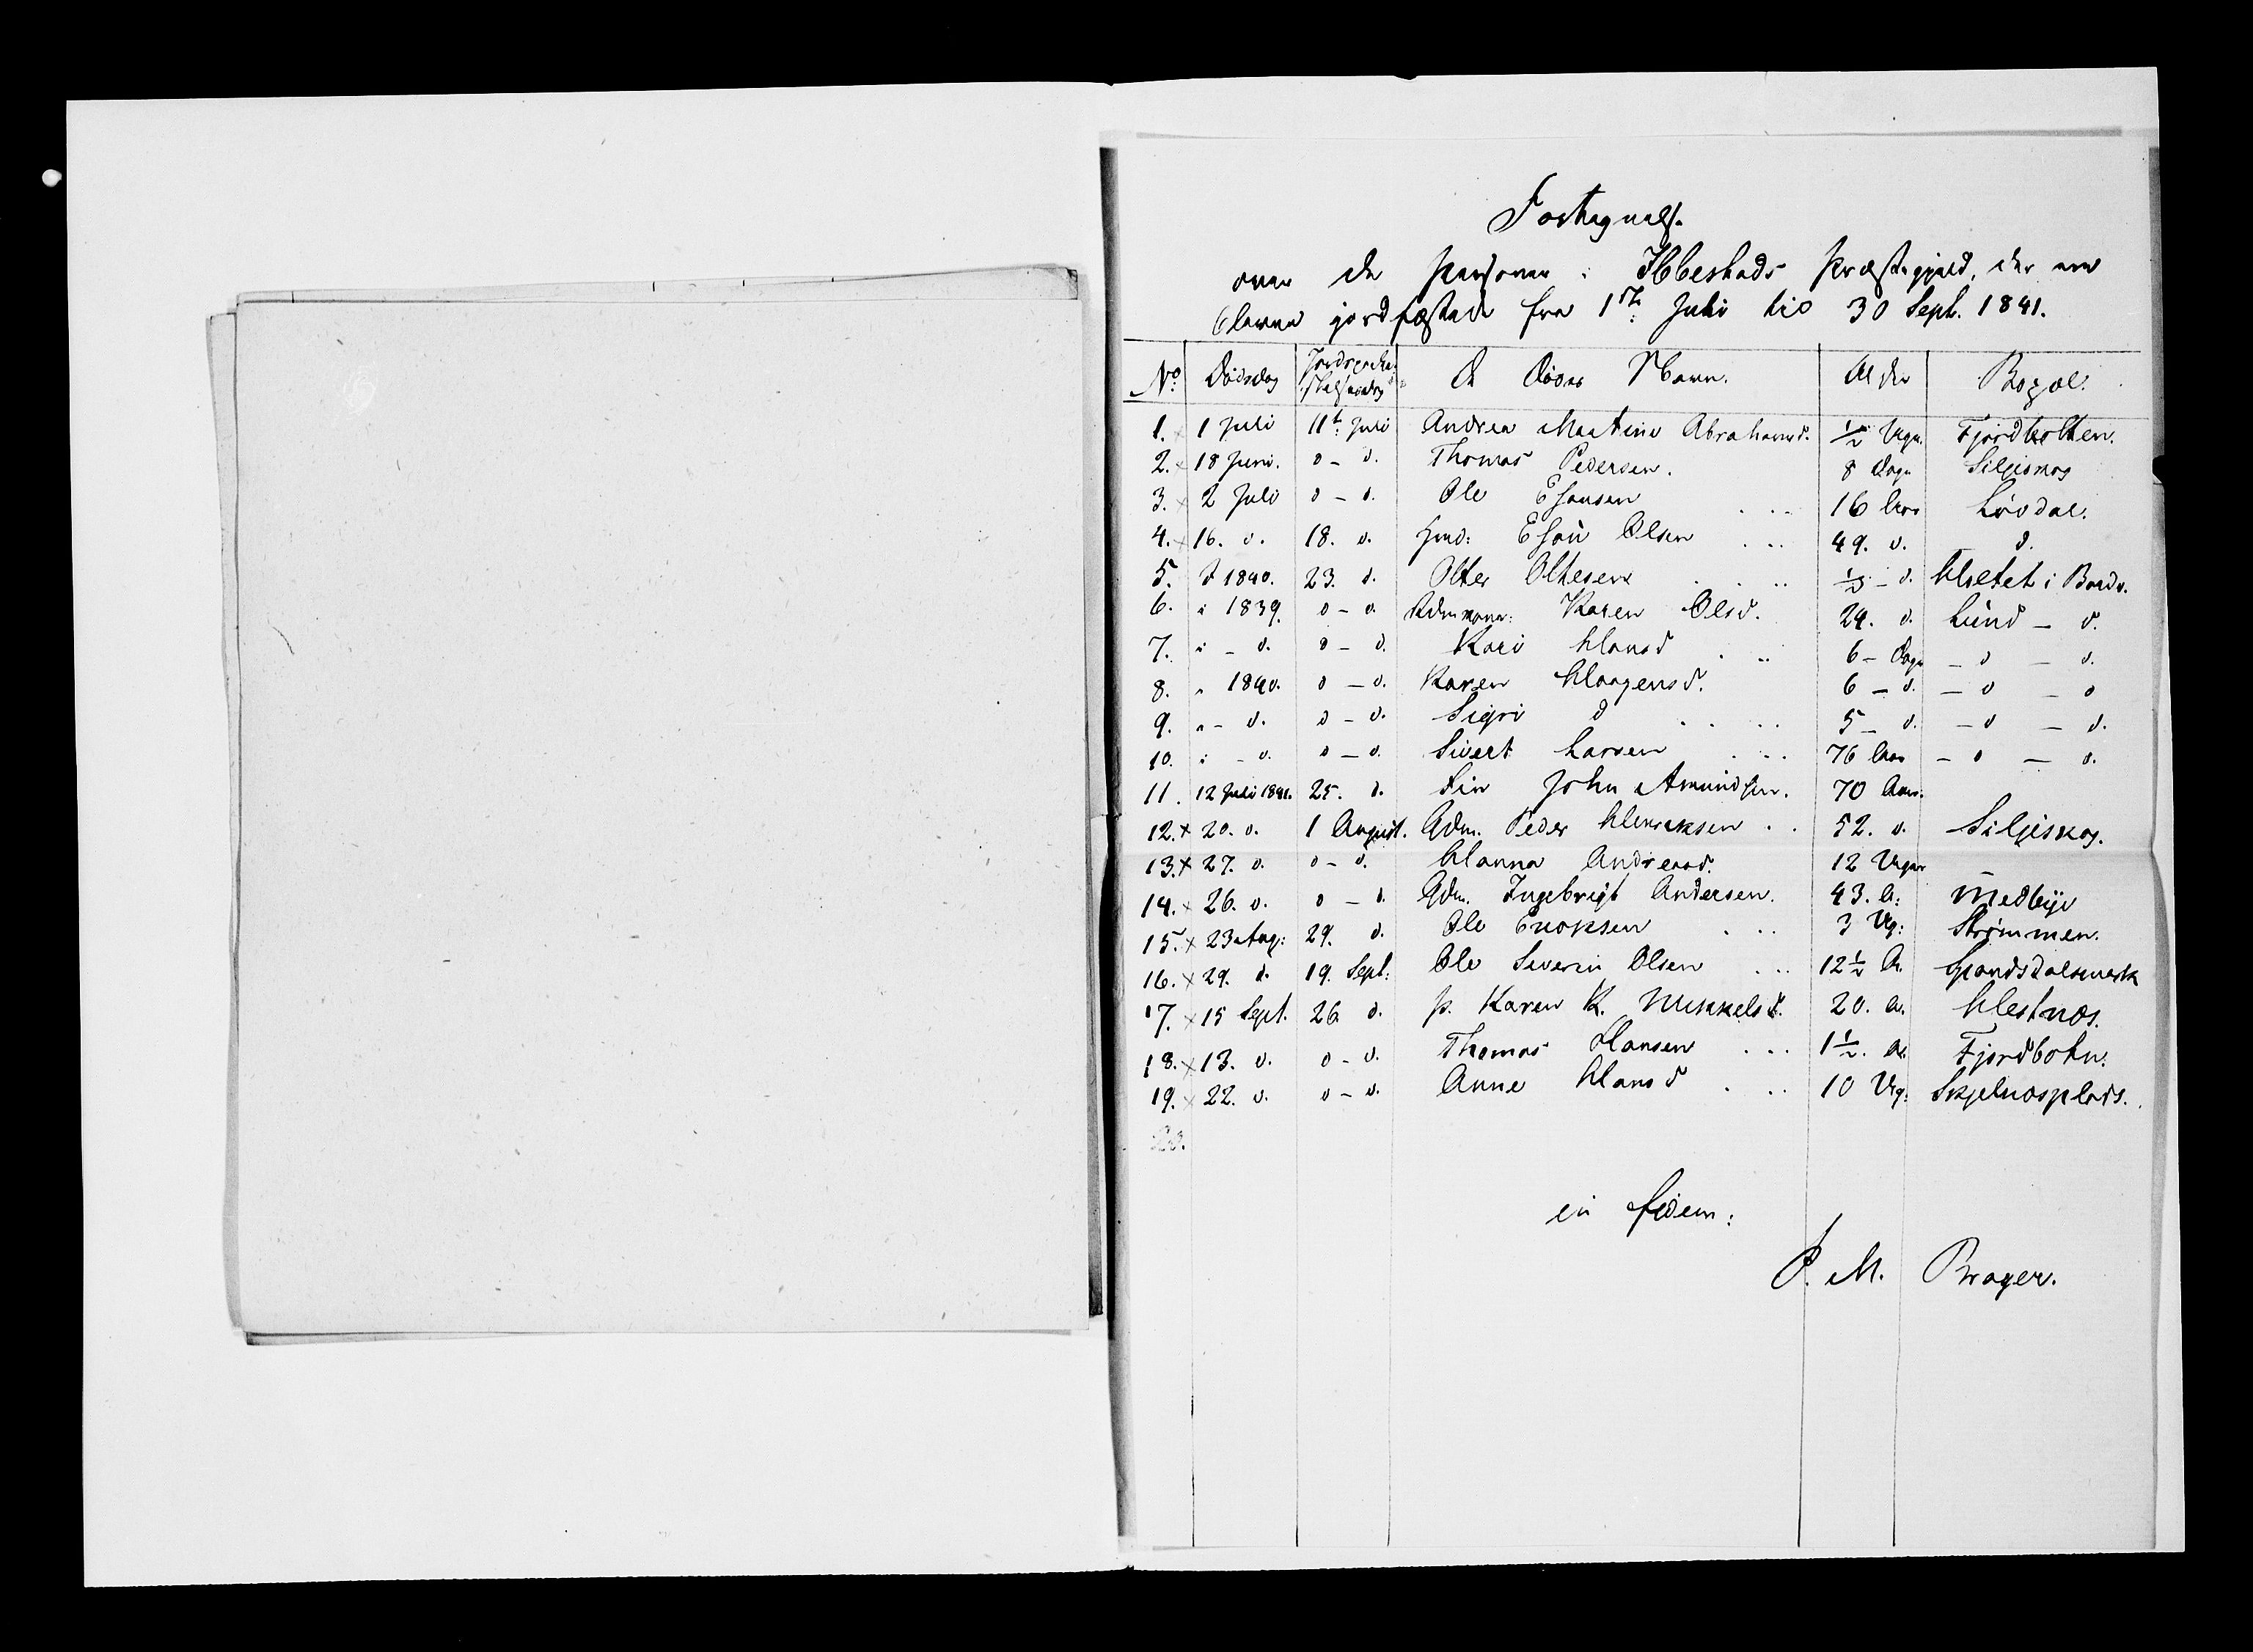 Fortegnelse
over de Personer i Ibbestads Præstegjæld, der ere
blevne jordfæstede fra 1ste Juli til 30 Sept. 1841.
No. Dödsdag Jordspaakastelsesdag De Dödes Navn. Alder Bopæl.
1. × 1 Juli 11t. Juli Andrea Martine Abrahamsd. ½ Ugr. Fjordbotten.
2. × 18 Juni. d - d. Thomas Pedersen. 8 Dage Siljeskog
3. × 2 Juli d - d. Ole Esausen ... 16 Aar Løvdal.
4. × 16. d. 18. d. Esau Olsen ... 49. d. d.
5. I 1840. 23. d. Olter Oltesen .... d. i Bardo.
6. i 1839. d - d. Karen Olsd. 29. d. Lund - d.
7. i - d. d - d. Kari Hansd ... 6 - Dage - d - d.
8. " 1840. d - d. Karen Haagensd. 6 - d. - d - d
9. " - d. d - d. Sigri d .... 5 - d. - d - d.
10. i - d. d - d. Sivert Larsen ... 76 Aar - d - d.
11. 12 Juli 1841. 25. d. Fin John Amundsen. 70 Aar.
12. × 20. d. 1 August. Gdm. Peder Henriksen .. 52. d. Siljeskog.
13. × 27. d. d - d. Hanna Andreasd. 12 Uger -
14. × 26. d. d - d. Gdm. Ingebrigt Andersen. 43. A: Medbye
15. × 23 Aug: 29. d. Ole Enoksen ... 3 Ug: Strømmen.
16. × 29. d. 19. Sept: Ole Severin Olsen ... 12½ A. Spandsdalsmark
17. × 15 Sept. 26. d. p. Karen K. Mikkelsd. 20. A. Hestnæs.
18. × 13. d. d - d. Thomas Hansen ... 1½. A. Fjordbotn.
19. × 22. d. d - d. Anne Hansd ... 10 Ug: Skjelnæsplads.
20.
in fidem:
P. M. Brager.